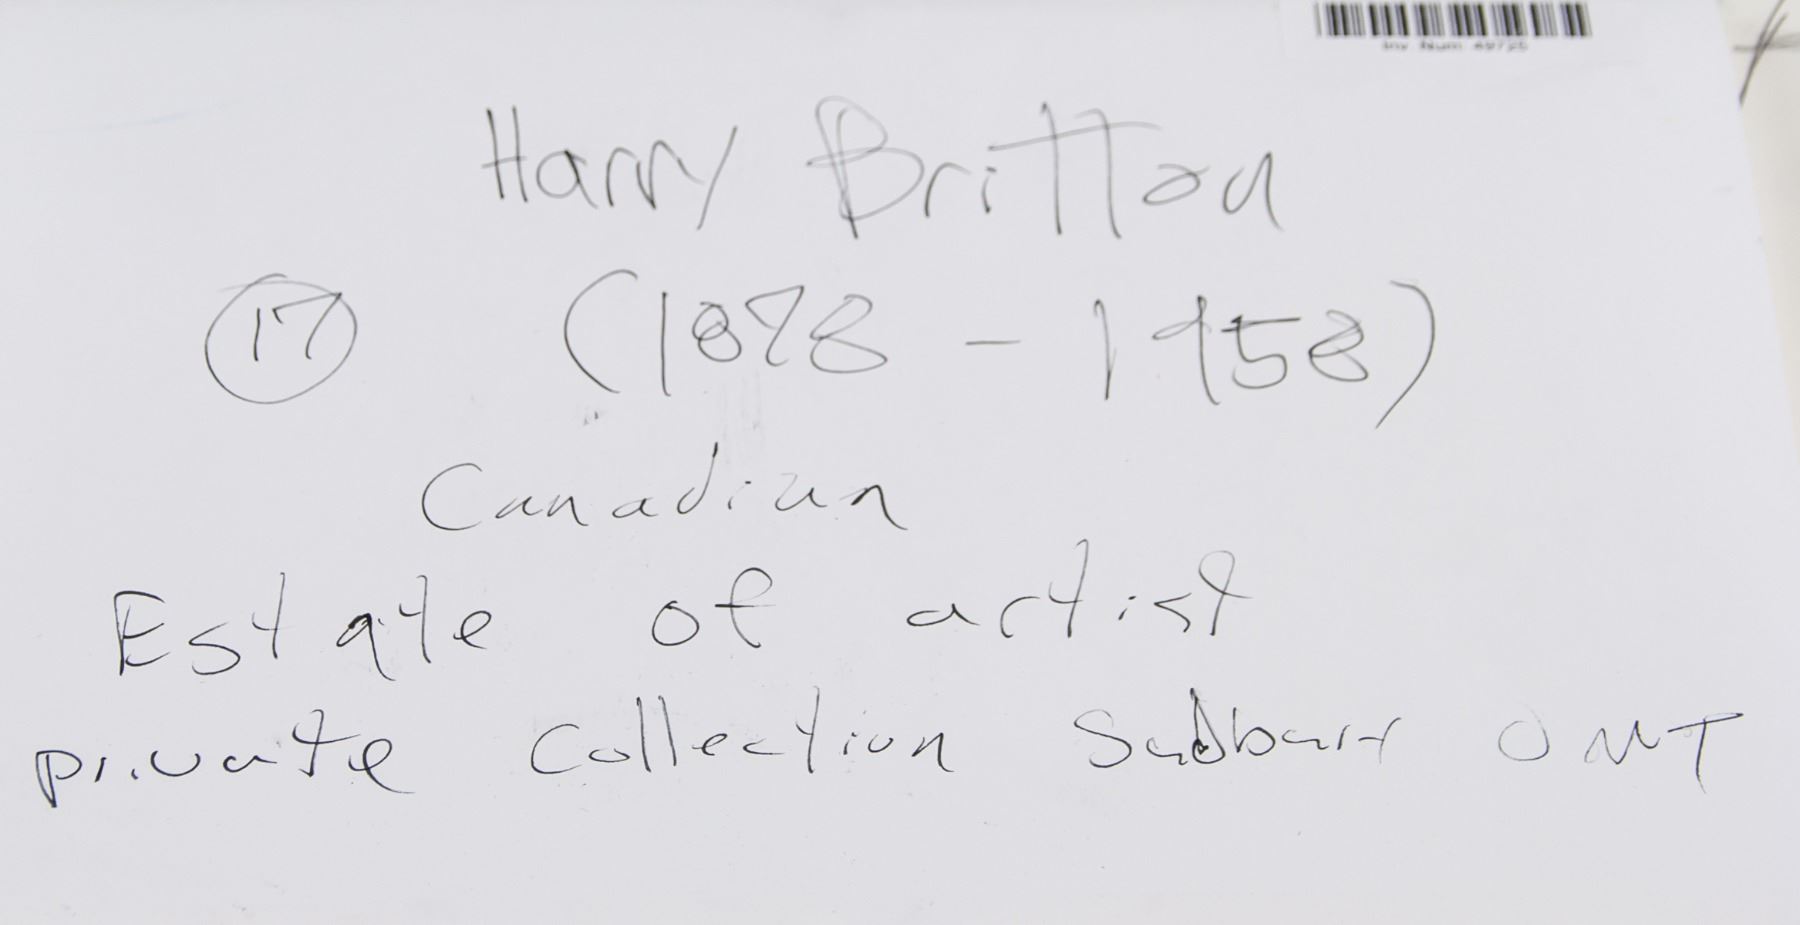 Inv Num 49725
Harry Britton
17 (1878 - 1958)
Canadian
Estate of artist
private collection Sudbury ONT